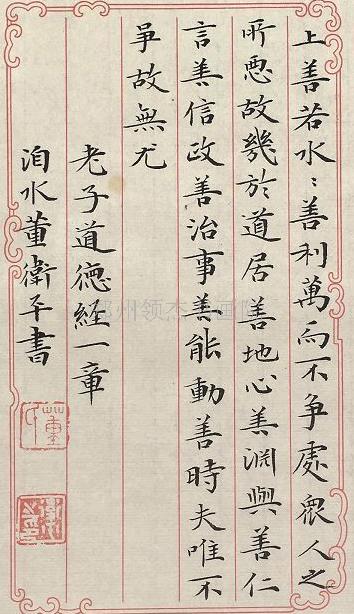 上善若水〻善利萬而不争處眾人之
所惡故幾於道居善地心善淵與善仁
言善信政善治事善能動善時夫唯不
爭故無尤
老子道德經一章
水董衛平書
董氏
郑州领杰书画院